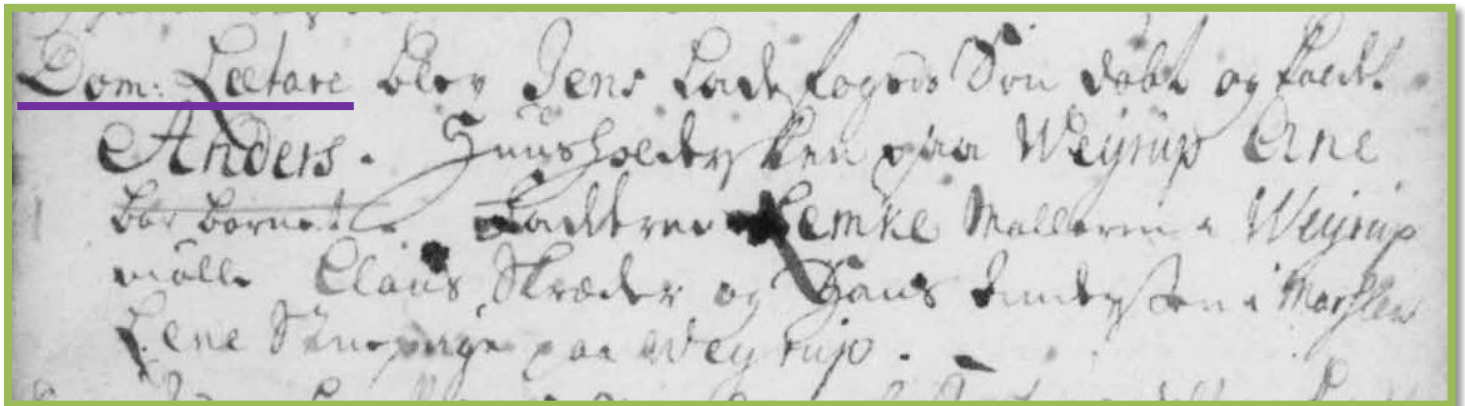 Dom: Lætare blev Jens Ladefogeds Søn døbt og kaldt
Anders. Huusholdersken paa Weyrup Ane
bar barnet. Faddere Lemke Mølleren i Weyrup
mølle Claus Skræder og Hans i Marslew
Lene Stuepige paa Weyrup.